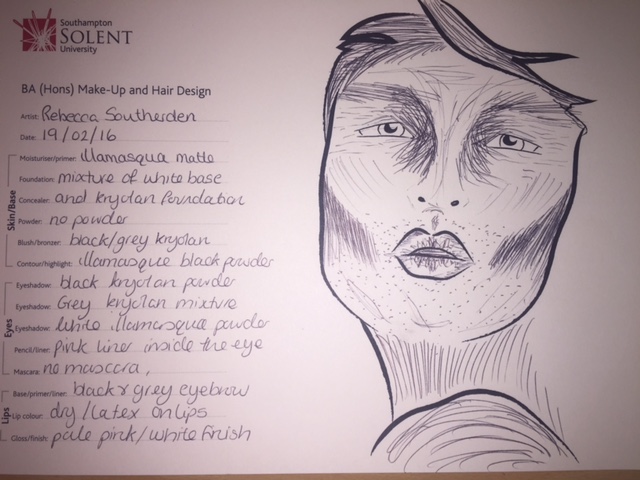 Southampton
SOLENT
University
BA (Hons) Make-Up and Hair Design
Artist: Rebecca Southerden
Date: 19/02/16
Skin/Base
Moisturiser/primer: illamasqua matte
Foundation: mixture of white base
Concealer: and kryolan foundation
Powder: no powder
Blush/bronzer: black/grey kryolan
Contour/highlight: illamasque black powder
Eyes
Eyeshadow: black kryolan powder
Eyeshadow: Grey kryolan mixture
Eyeshadow: white illamasqua powder
Pencil/liner: pink liner inside the eye
Mascara: no mascara,
Lips
Base/primer/liner: black & grey eyebrow
Lip colour: dry/latex on lips
Gloss/finish: pale pink/white finish